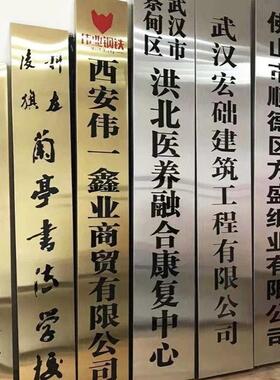 科左
後旗
蘭亭書法学校
伟业钢铁
西安伟一鑫业商贸有限公司
武汉市
蔡甸区
洪北医养融合康复中心
武汉宏础建筑工程有限公司
市顺德区方盛纸业有限公